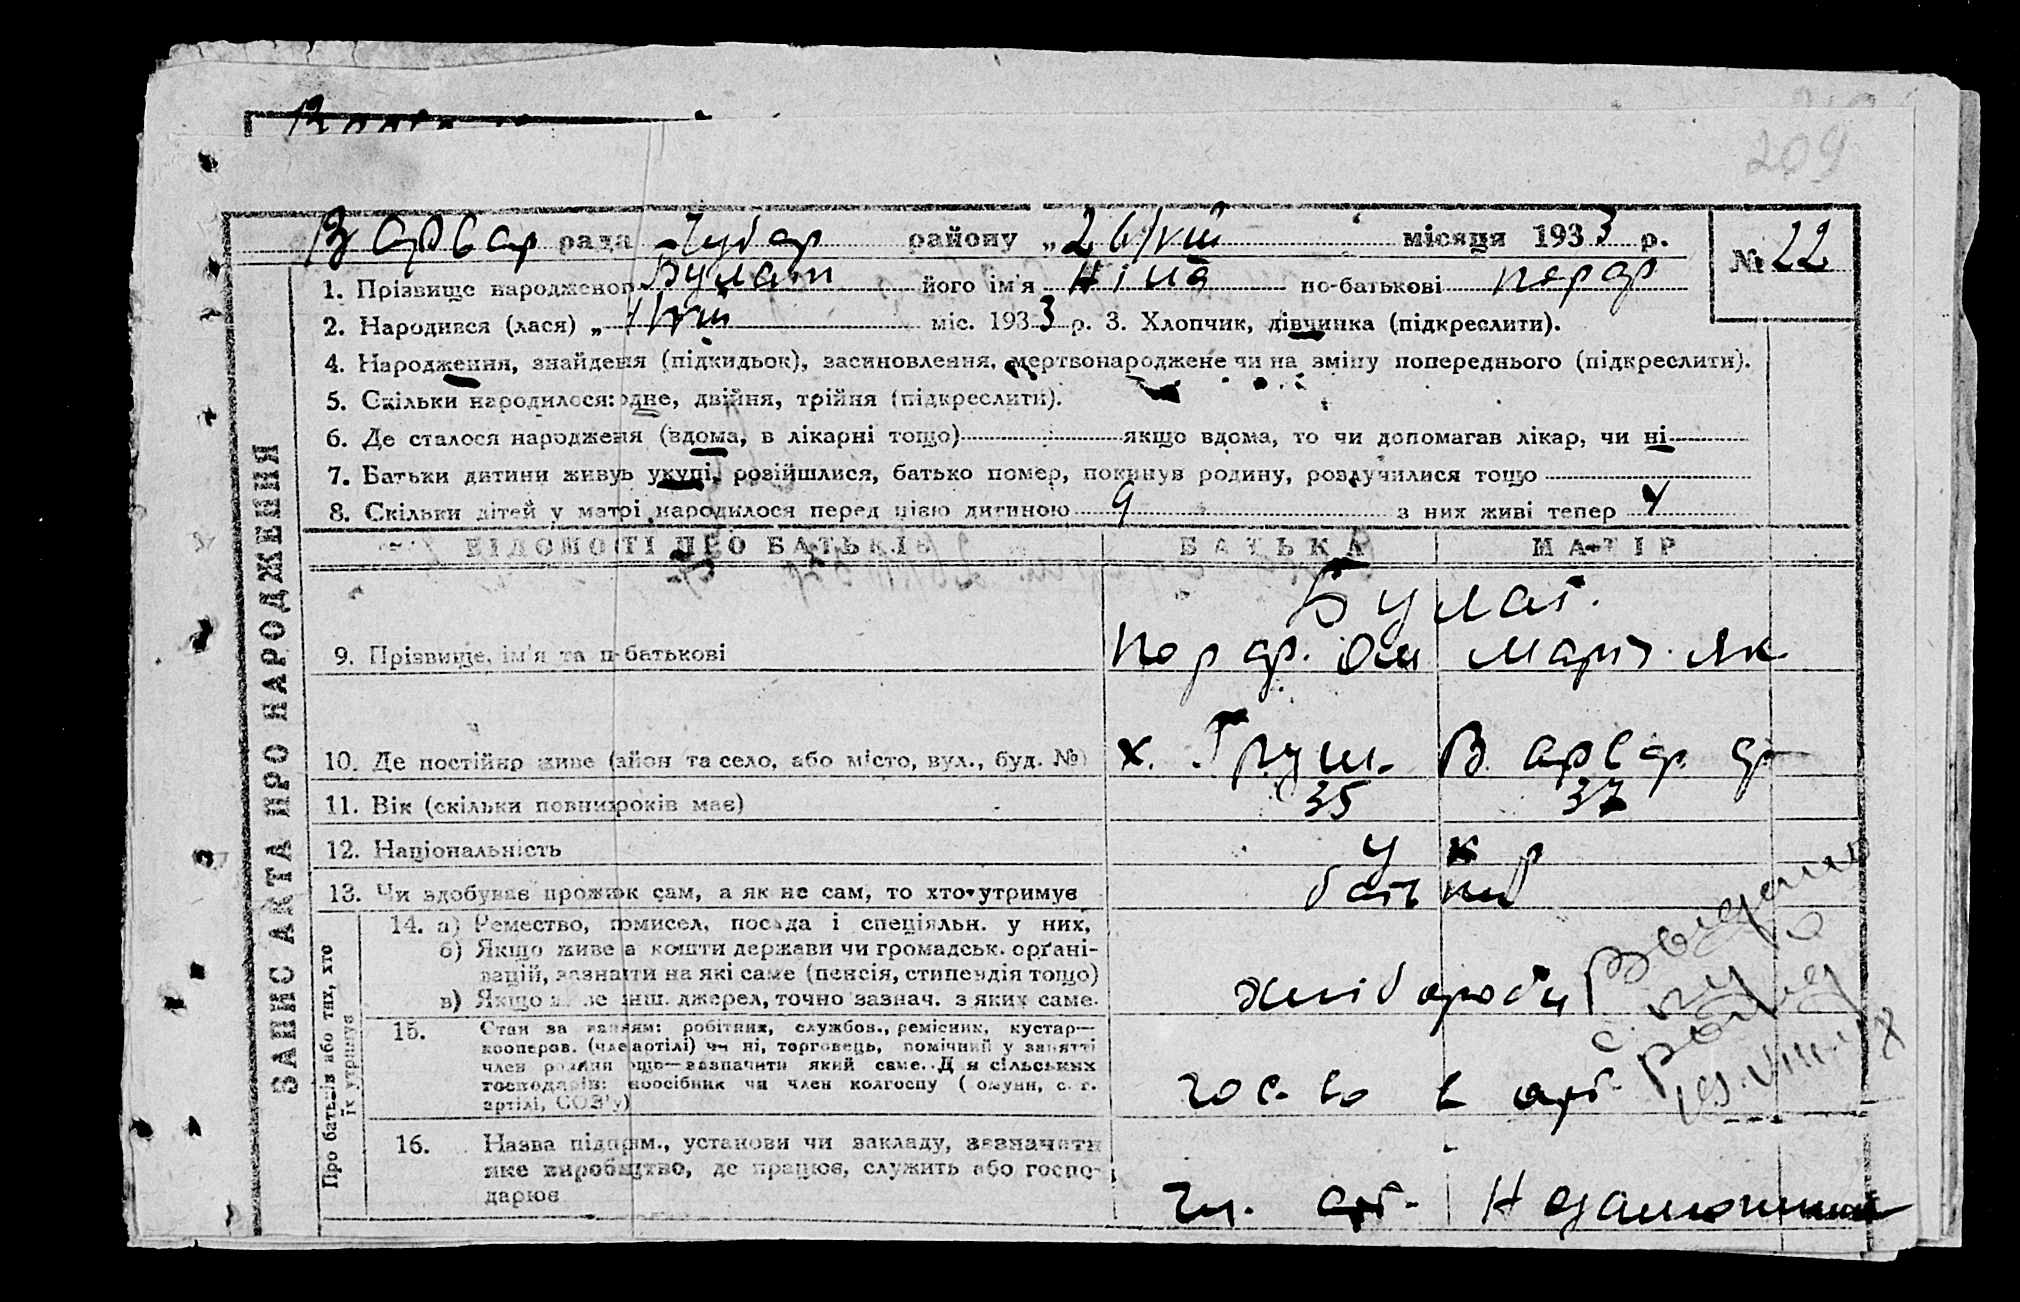 209
Варвар рада Чубар району „26/VIII місяця 1933 р.
№ 22
1. Прізвище народженог Булат його ім'я Ніна по-батькові порф
2. Народився (лася) „1/VIII міс. 1933 р. 3. Хлопчик, дівчинка (підкреслити).
4. Народження, знайденя (підкидьок), засиновлення, мертвонароджене чи на зміну попереднього (підкреслити).
5. Скільки народилося: одне, двійня, трійня (підкреслити).
6. Де сталося народження (вдома, в лікарні тощо) якщо вдома, то чи допомагав лікар, чи ні
7. Батьки дитини живуь укупі, розійшлися, батько помер, покинув родину, розлучилися тощо
8. Скільки дітей у матрі народилося перед цією дитиною 9 з них живі тепер 4
ВІДОМОСТІ ПРО БАТЬКІВ БАТЬКА МАТІР
Булат.
9. Прізвище, ім'я та п-батькові Порф. Ом Марф. Як
10. Де постійнр живе (айон та село, або місто, вул., буд. №) х. Груш. Варвар ср
11. Вік (скільки повнихроків має) 35 37
12. Національність укр
13. Чи здобуває прожток сам, а як не сам, то хто утримує батьки
ЗАПИС АКТА ПРО НАРОДЖЕННЯ
Про батьків або тих, хто їх утримує
14. а) Ремество, промисел, посада і спеціяльн. у них,
б) Якщо живе а кошти держави чи громадськ. орґані-
зацій, зазнаити на які саме (пенсія, стипендія тощо)
в) Якщо з інш. джерел, точно зазнач. з яких саме.
хлібороби
15. Стан за заняям: робітник, службов., ремісник, кустар—
кооперов. (чле артілі) чи ні, торговець, помічний у занятті
член родини ощо—зазначити який саме. Д я сільських
господарів: ноосібник чи член колгоспу ( омуни, с. г.
артілі, СОЗ'у)
гос-во в арт.
16. Назва підпрім., установи чи закладу, зазначити
яке виробицтво, де працює, служить або госпо-
дарює
чл. арт. Незаможник